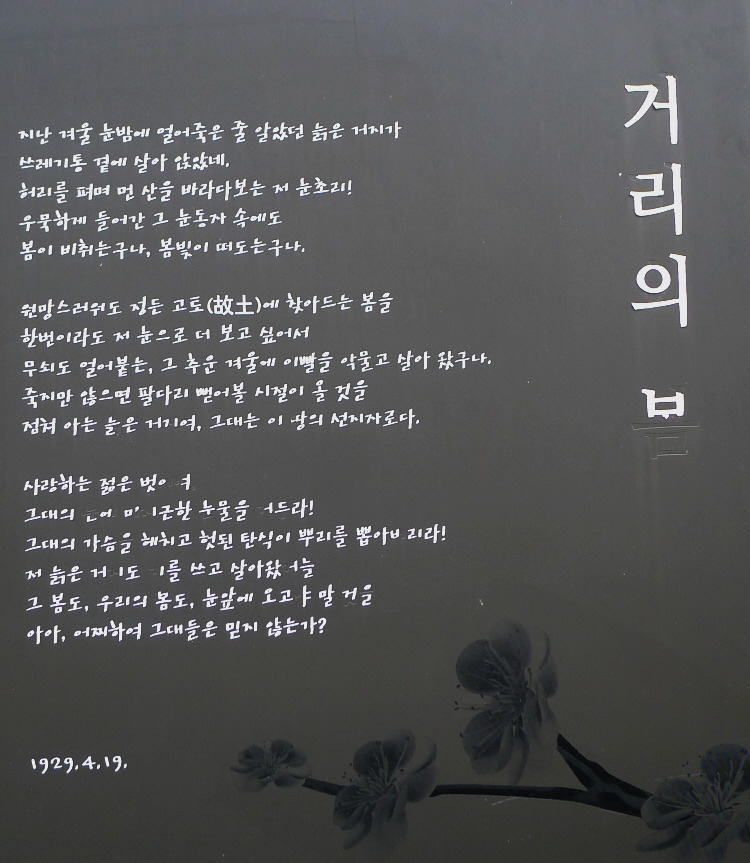 거리의 봄
지난 겨울 눈밤에 얼어죽은 줄 알았던 늙은 거지가
쓰레기통 곁에 살아 앉았네.
허리를 펴며 먼 산을 바라다보는 저 눈초리!
우묵하게 들어간 그 눈동자 속에도
봄이 비취는구나, 봄빛이 떠도는구나.
원망스러워도 정든 고토(故土)에 찾아드는 봄을
한번이라도 저 눈으로 더 보고 싶어서
무쇠도 얼어붙는, 그 추운 겨울에 이빨을 악물고 살아 왔구나.
죽지만 않으면 팔다리 뻗어볼 시절이 올 것을
점쳐 아는 늙은 거지여, 그대는 이 땅의 선지자로다.
사랑하는 젊은
그대의
그대의 가슴을 헤치고 헛된 탄식이 뿌리를
저 늙은 쓰고
그 봄도, 우리의 봄도, 눈앞에 말
아아, 어찌하여 그대들은 믿지 않는가?
1929.4.19.